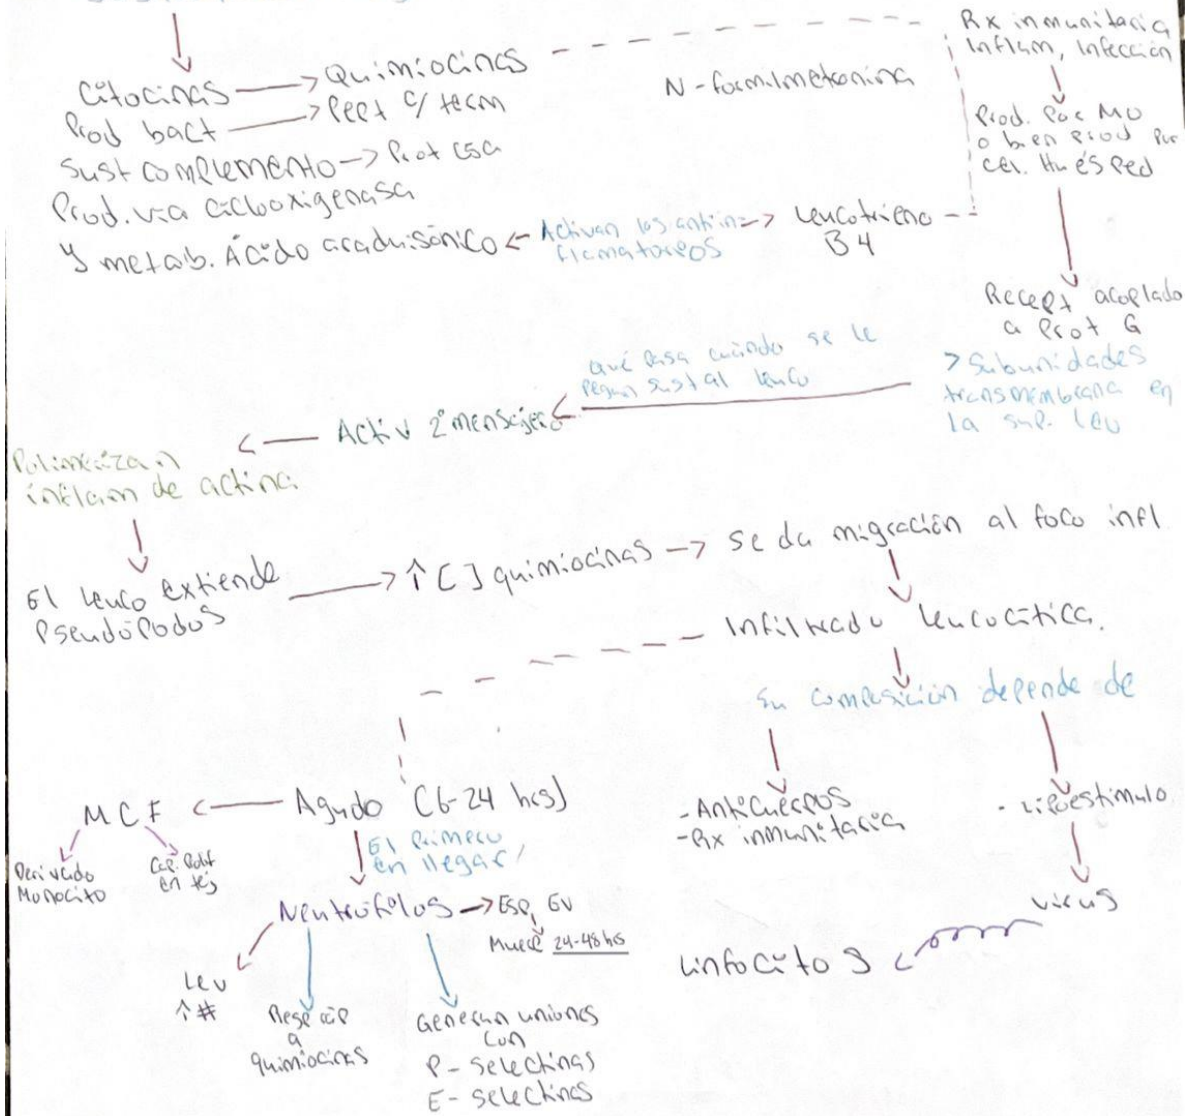 Citocinas → Quimiocinas
Prod bact → Pept c/ term
N-formilmetionina
Sust complemento → Prot C5a
Prod. vía ciclooxigenasa
y metab. Ácido araquisónico ← Activan los antiin-
flamatorios → Leucotrieno
B4
Rx inmunitaria
Inflam, Infección
Prod. Por MO
o bien prod Por
cel. Huésped
Recept acoplado
a Prot G
> Subunidades
transmembrana en
la sup. Leu
qué pasa cuando se le
pegan sust al leuco
Activ 2° mensajero
Polimerizan
inflam de actina.
El leuco extiende
Pseudópodos
↑ [ ] quimiocinas → se da migración al foco infl
Infiltrado leucocítica.
Su composición depende de
- Anticuerpos
- Rx inmunitaria
- Tipo estimulo
virus
Linfocitos
MCF ← Agudo (6-24 hrs)
Derivado
Monocito
en tej
El primero
en llegar
Neutrófilos → Esp, EV
Muere 24-48 hs
Leu
↑ #
a
quimiocinas
Generan uniones
con
P-selectinas
E-selectinas